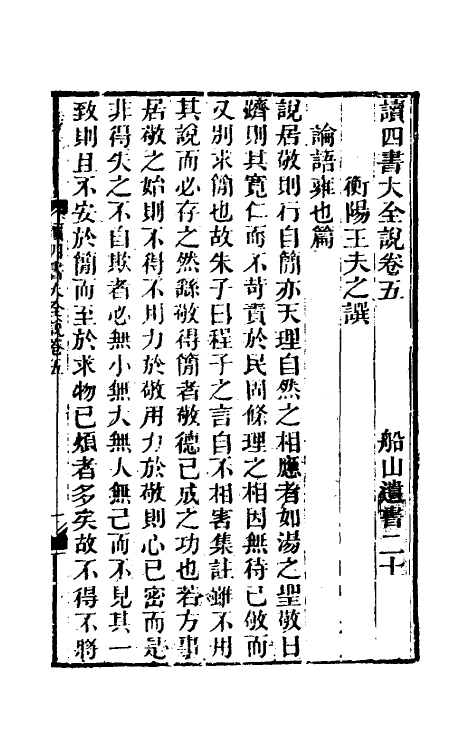 讀四書大全說卷五　　　船山遺書二十
衡陽王夫之譔
論語雍也篇
說居敬則行自簡亦天理自然之相應者如湯之聖敬日
躋則其寬仁而不苛責於民固條理之相因無待已敬而
又別求簡也故朱子曰程子之言自不相害集註雖不用
其說而必存之然繇敬得簡者敬德已成之功也若方事
居敬之始則不得不用力於敬用力於敬則心已密而是
非得失之不自欺者必無小無大無人無己而不見其一
致則且不安於簡而至於求物已煩者多矣故不得不將
讀四書大全說卷五
一